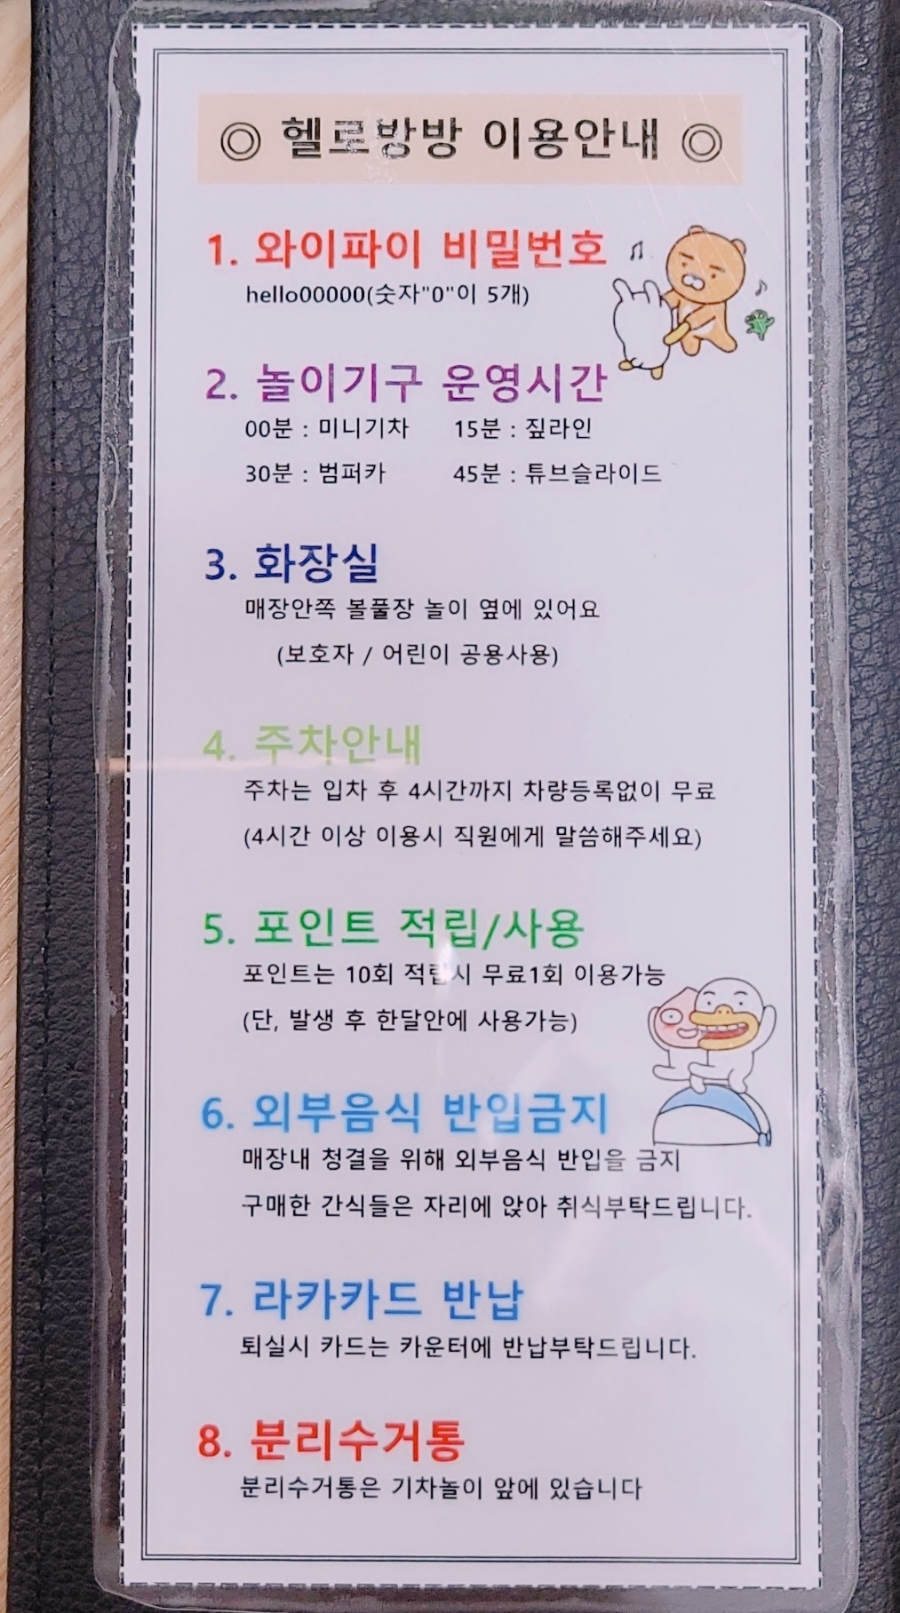 ◎ 헬로방방 이용안내 ◎
1. 와이파이 비밀번호
hello00000(숫자"0"이 5개)
2. 놀이기구 운영시간
00분 : 미니기차 15분 : 짚라인
30분 : 범퍼카 45분 : 튜브슬라이드
3. 화장실
매장안쪽 볼풀장 놀이 옆에 있어요
(보호자 / 어린이 공용사용)
4. 주차안내
주차는 입차 후 4시간까지 차량등록없이 무료
(4시간 이상 이용시 직원에게 말씀해주세요)
5. 포인트 적립/사용
포인트는 10회 적립시 무료1회 이용가능
(단, 발생 후 한달안에 사용가능)
6. 외부음식 반입금지
매장내 청결을 위해 외부음식 반입을 금지
구매한 간식들은 자리에 앉아 취식부탁드립니다.
7. 라카카드 반납
퇴실시 카드는 카운터에 반납부탁드립니다.
8. 분리수거통
분리수거통은 기차놀이 앞에 있습니다